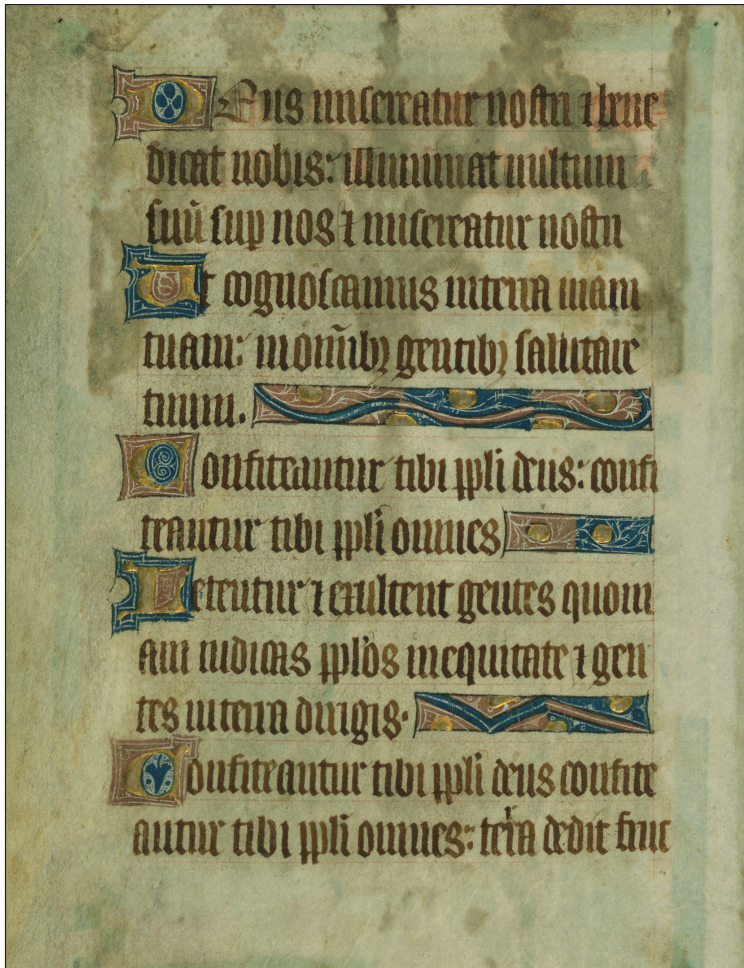 Deus misereatur nostri ⁊ bene
dicat nobis: illuminat uultum
suū sup nos ⁊ misereatur nostri
Et cognoscamus in terra uiam
tuam: in om̄ibꝫ gentibꝫ salutare
tuum.
Confiteantur tibi ppl̄i deus: confi
teantur tibi ppl̄i omnes
Letentur ⁊ exultent gentes quoni
am iudicas ppl̄os in equitate ⁊ gen
tes in terra dirigis.
Confiteantur tibi ppl̄i deus confite
antur tibi ppl̄i omnes: terra dedit fruc